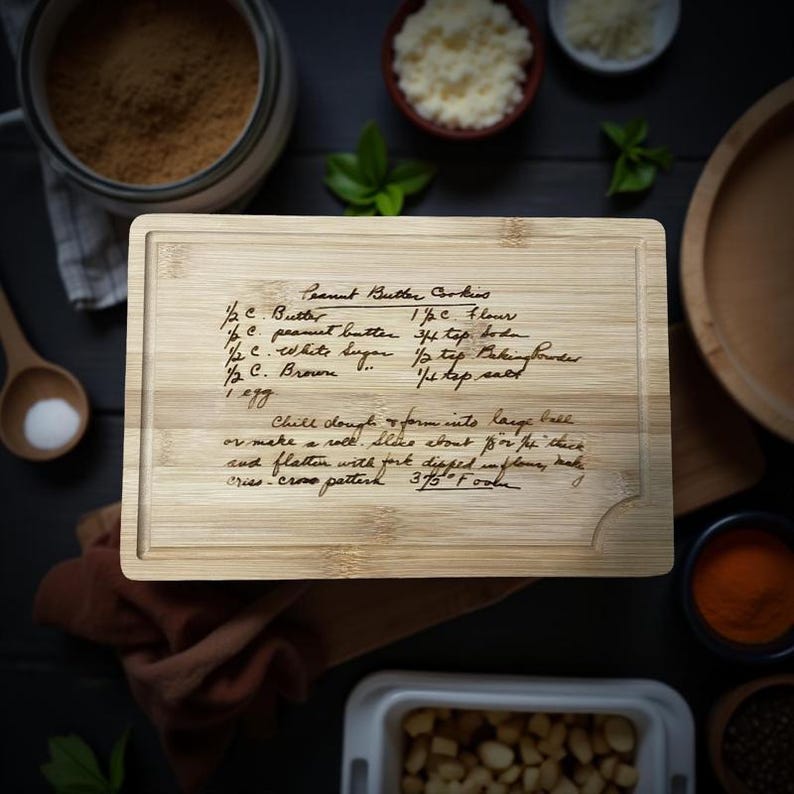 Peanut Butter Cookies
1/2 C. Butter 1 1/2 C. Flour
1/2 C. peanut butter 3/4 tsp Soda
1/2 C. White Sugar 1/2 tsp Baking Powder
1/2 C. Brown " 1/4 tsp salt
1 egg
Chill dough & form into large ball
or make a roll. Slice about 1/8" or 1/4" thick
and flatten with fork dipped in flour, making
criss-cross pattern 375° F oven